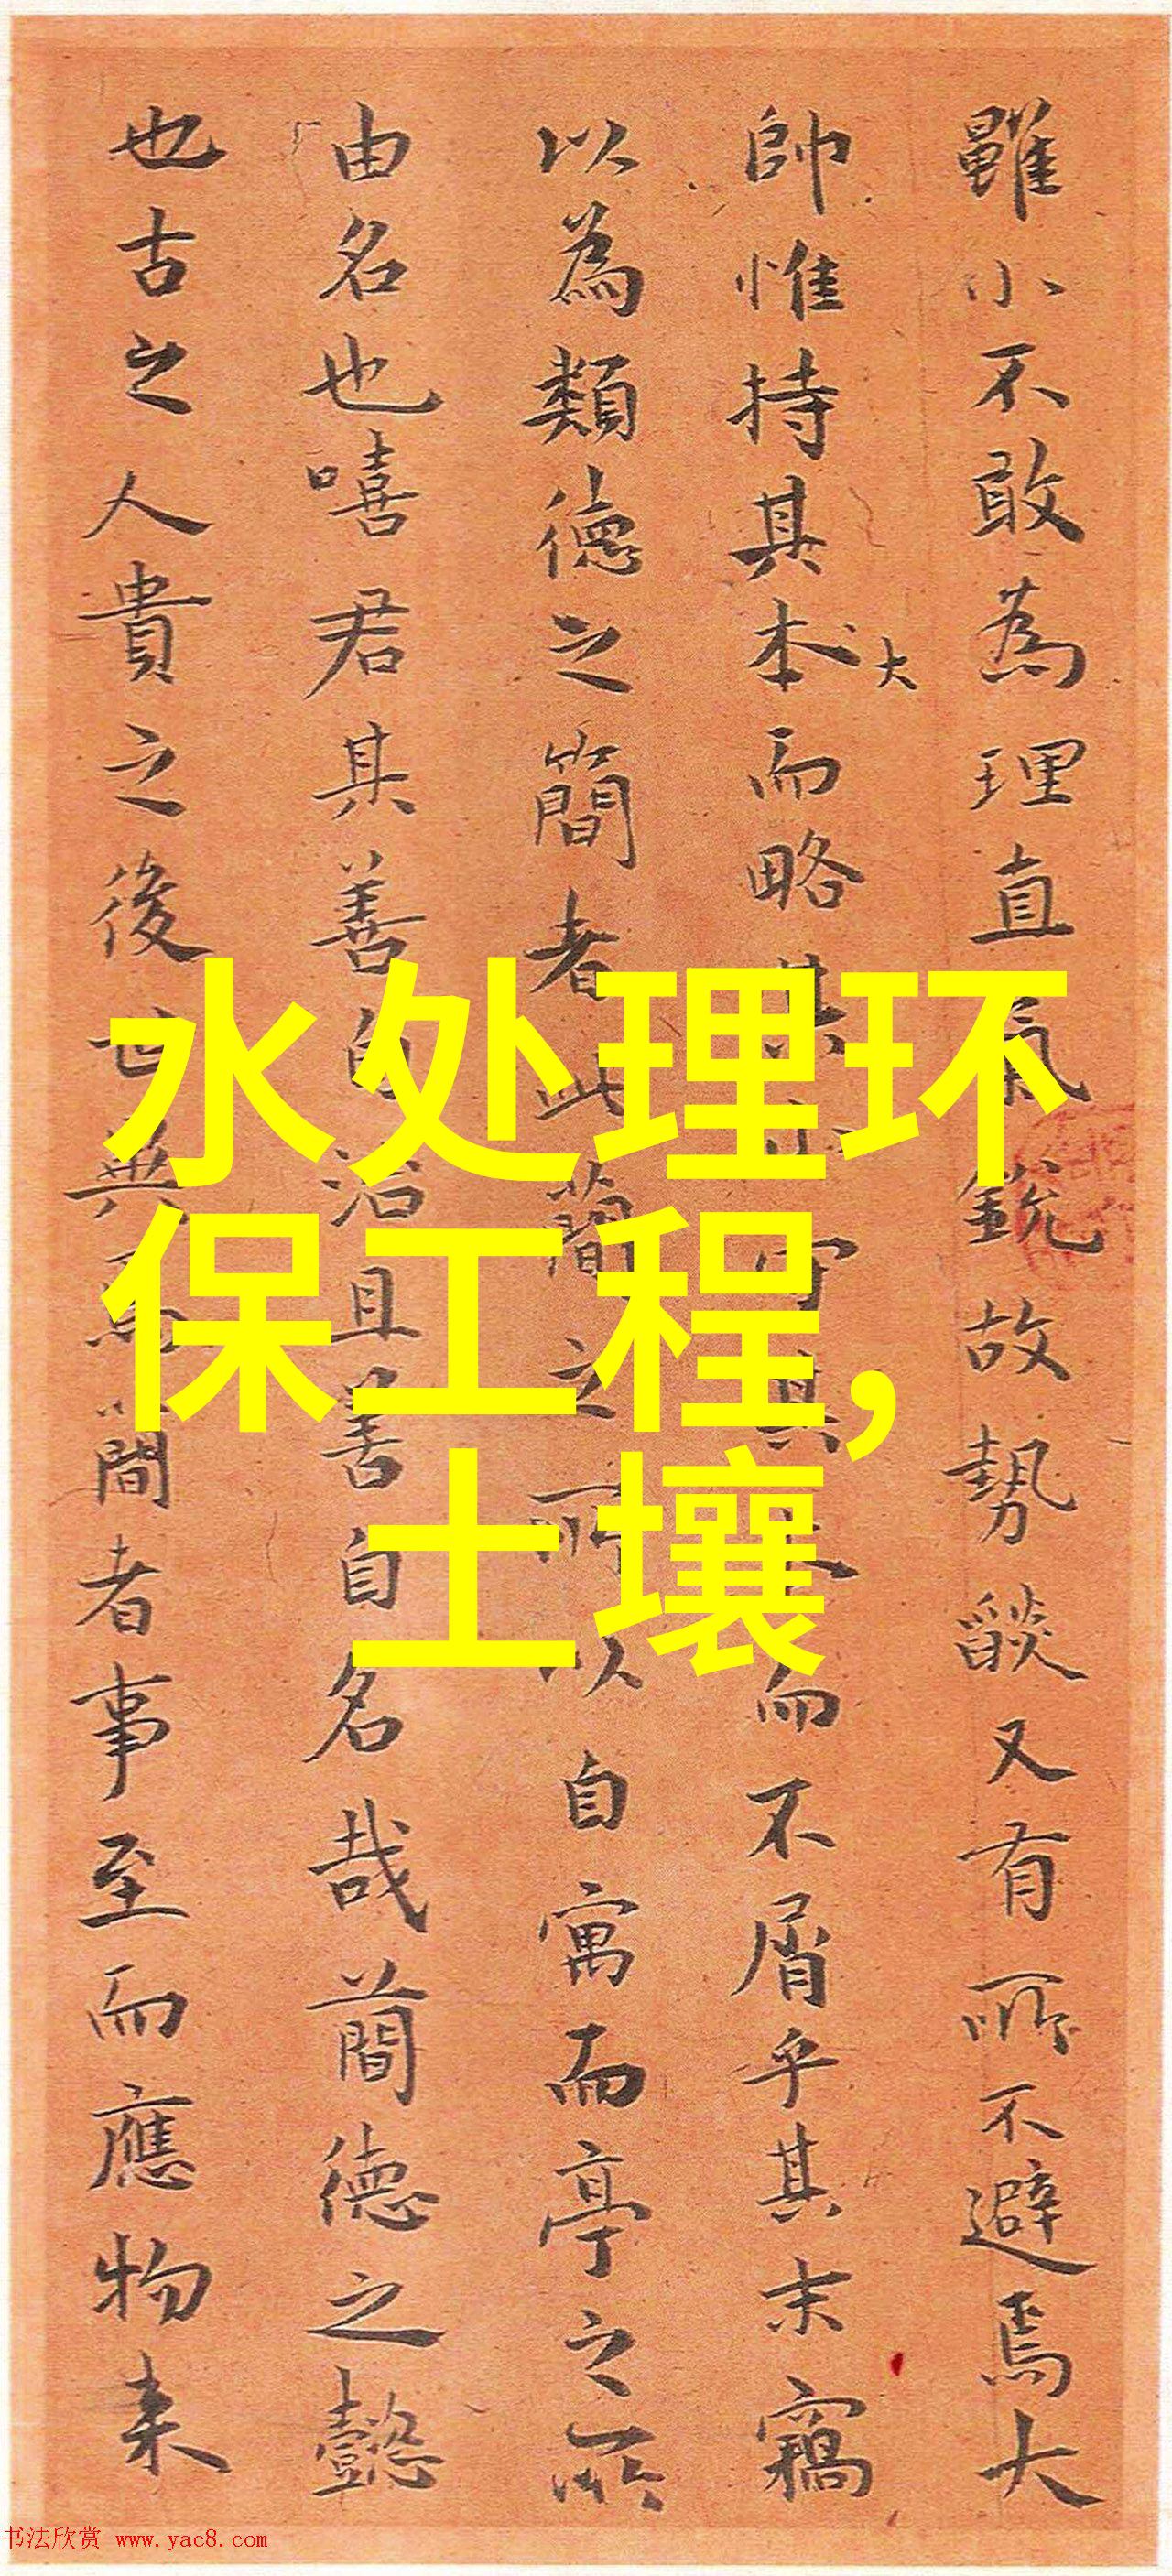 雖小不敢為理直氣銳故勢燄又有所不避焉大
帥惟持其本而略其守其而不屑乎其末竊
大
以為類德之簡者此簡之所以自寓而亭之所
由名也嘻君其善自治且善自名哉蕳德之懿
也古之人貴之後世無聞者事至而應物来
水处理环
保工程,
土壤
书法欣赏 www.yac8.com